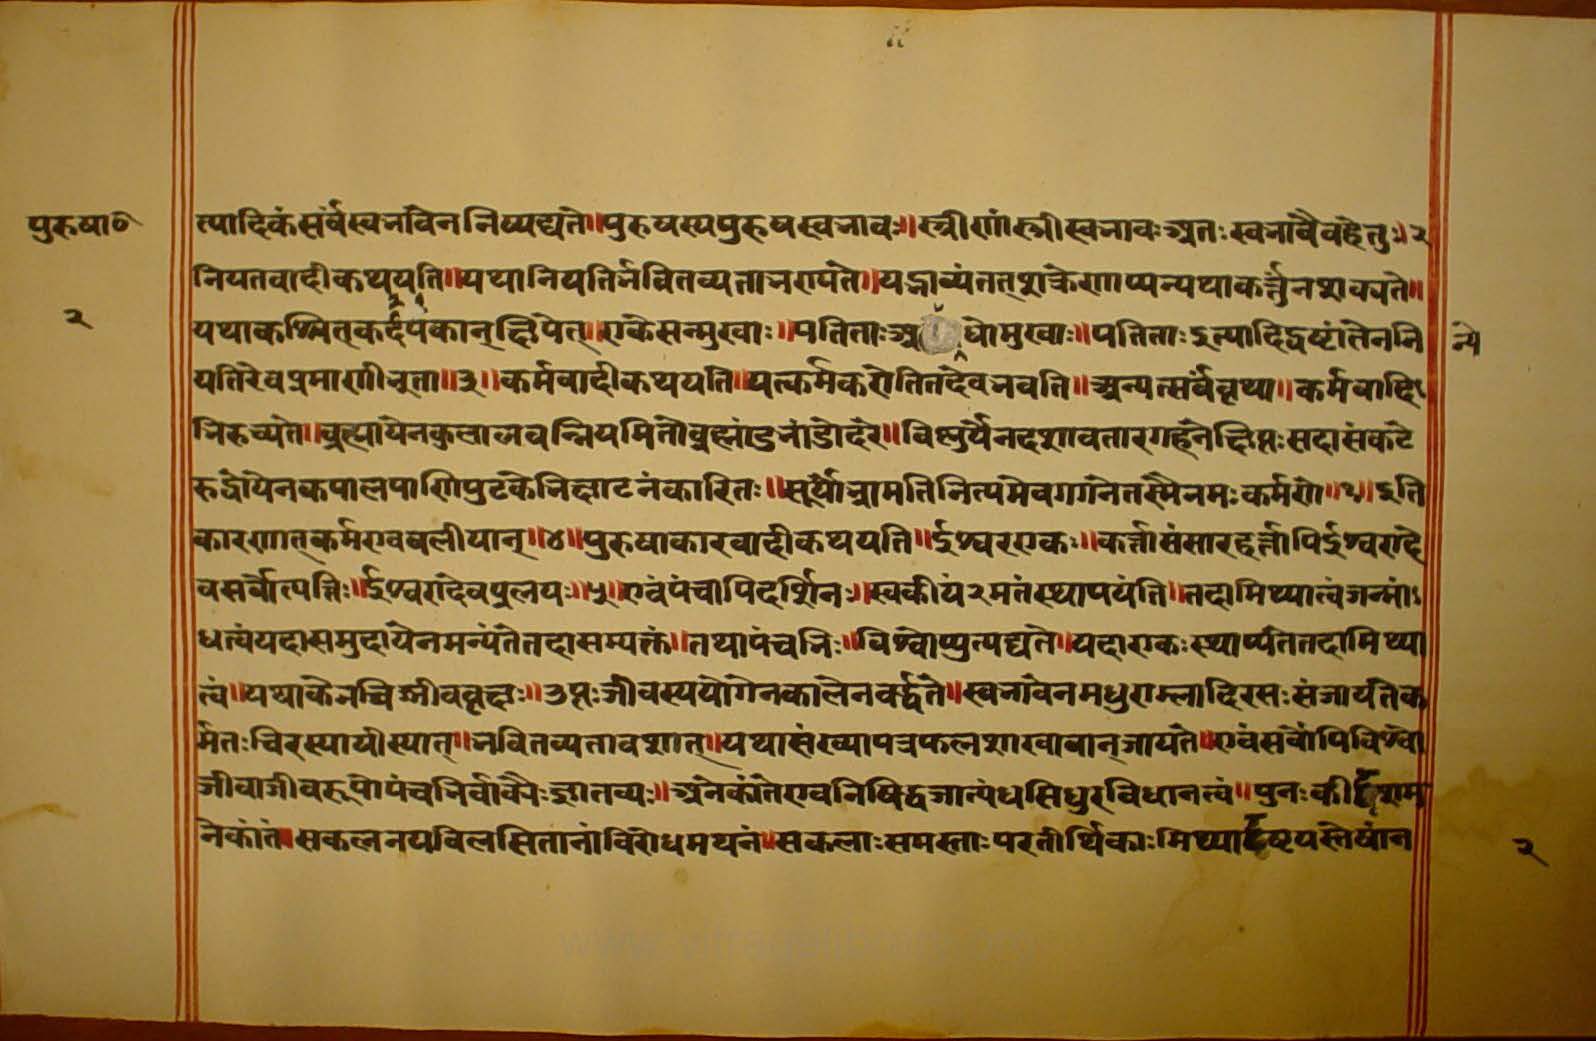 पुरुषा०
२
त्यादिकं सर्वं स्वभावेन निष्पद्यते॥ पुरुषस्य पुरुषस्वभावः॥ स्त्रीणां स्त्रीस्वभावः अतः स्वभावैव हेतुः॥२
नियतवादी कथयति॥ यथा नियतिर्भवितव्यता भण्यते॥ यद्भाव्यं तत् शक्रेणाप्यन्यथा कर्त्तुं न शक्यते॥
यथा कश्चित् कर्दपकान् क्षिपेत्॥ एके सन्मुखाः॥ पतिताः अधोमुखाः॥ पतिताः इत्यादि दृष्टांतेन नि
न्ये
यतिरेव प्रमाणीभूता॥३॥ कर्मवादी कथयति॥ यत्कर्म करोति तदेव भवति॥ अन्यत्सर्वं वृथा॥ कर्मवादि
भिरुच्यते॥ ब्रह्मा येन कुलालवन्नियमितो ब्रह्मांडभांडोदरे॥ विष्णुर्येन दशावतारगहने क्षिप्तः सदा संकटे
रुद्रो येन कपालपाणिपुटके भिक्षाटनं कारितः॥ सूर्यो भ्रामति नित्यमेव गगने तस्मै नमः कर्मणे॥१॥ इति
कारणात् कर्म एव बलीयान्॥४॥ पुरुषाकारवादी कथयति॥ ईश्वर एकः॥ कर्त्ता संसारहर्त्तापि ईश्वरादे
व सर्वोत्पत्तिः॥ ईश्वरादेव प्रलयः॥५॥ एवं पंचापि दर्शिनः॥ स्वकीयं२ मतं स्थापयंति॥ तदा मिथ्यात्वं जन्मां
धत्वं यदा समुदायेन मन्यंते तदा सम्यक्तं॥ तथा पंचभिः॥ विश्वोप्युत्पद्यते॥ यदा एकः स्थाप्यते तदा मिथ्या
त्वं॥ यथा केनचिज्जीववृक्षः॥ उप्तः जीवस्य योगेन कालेन वर्द्धते॥ स्वभावेन मधुराम्लादिरसः संजायते क
र्मतः चिरस्थायी स्यात्॥ भवितव्यतावशात्॥ यथासंख्यापत्रफलशाखावान् जायते॥ एवं सर्वोपि विश्वो
जीवाजीवरूपो पंचभिर्वाचैः ज्ञातव्यः॥ अनेकांते एव निषिद्धजात्यंधसिंधुरविधानत्वं॥ पुनः कीदृशम
नेकांतं सकलनयविलसितानां विरोधमथनं॥ सकलाः समस्ताः परतीर्थिकाः मिथ्यादृष्टयस्तेषां न
२